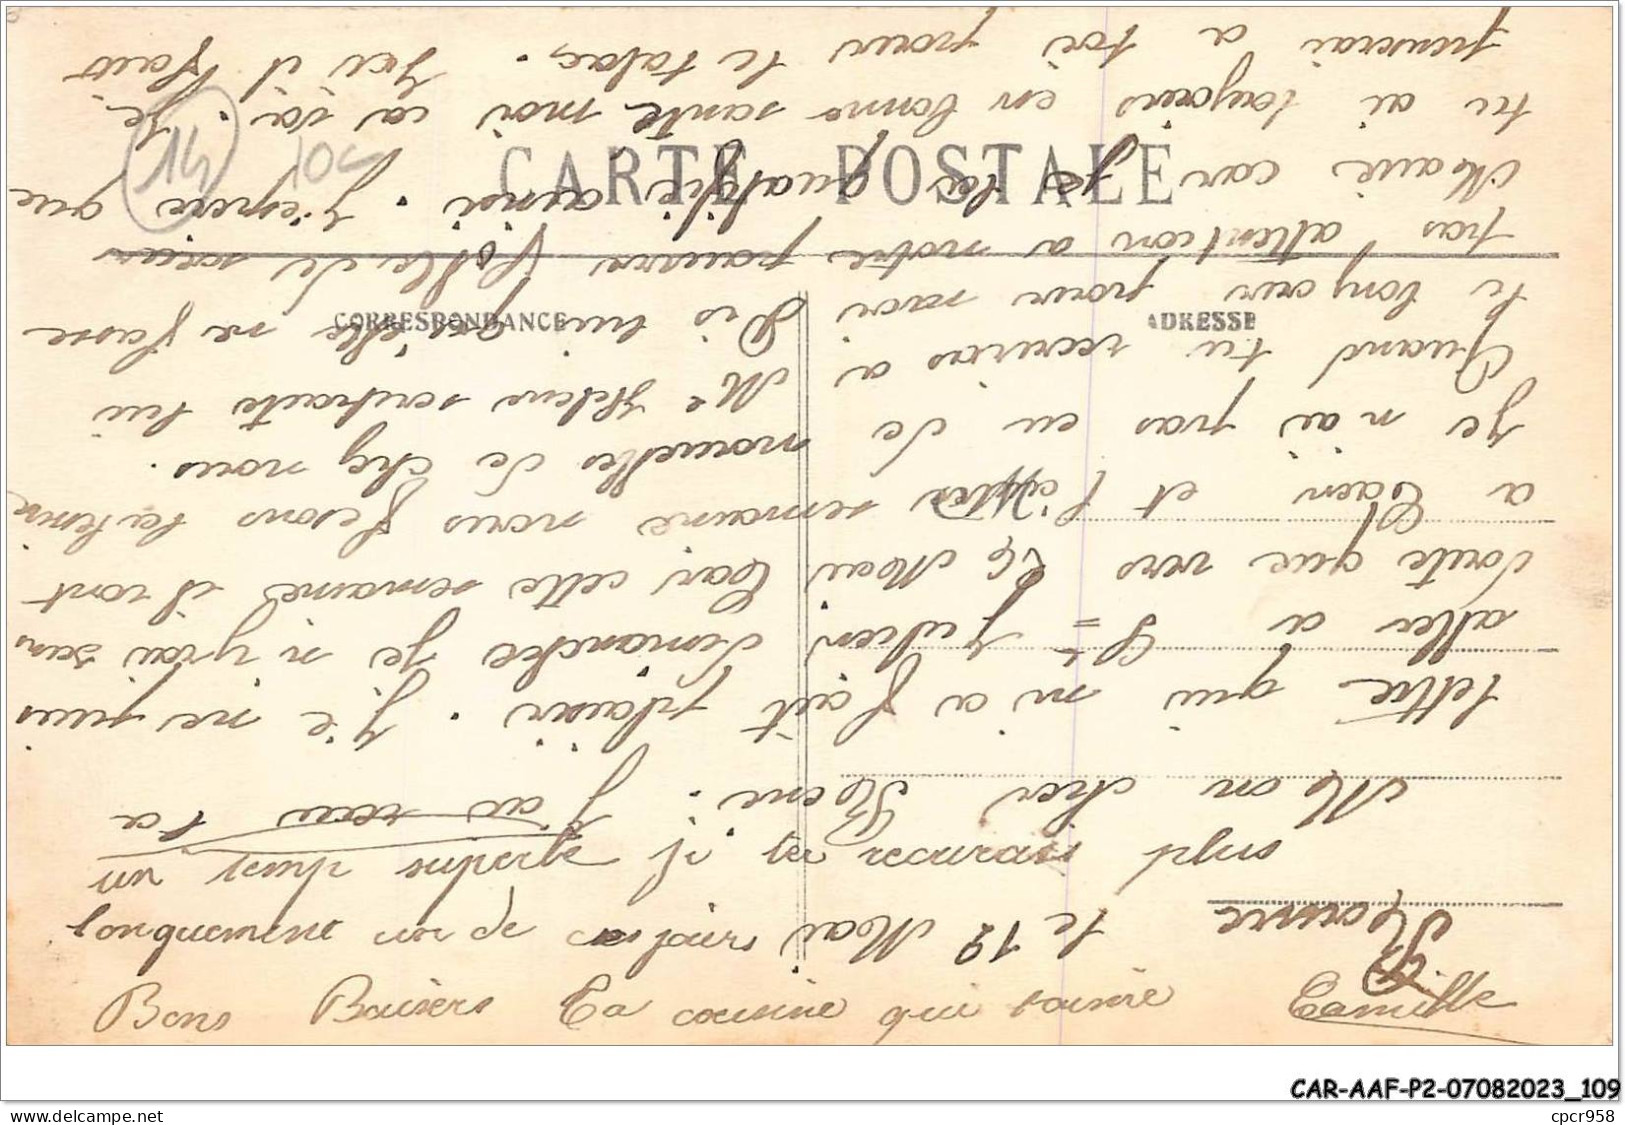 CARTE POSTALE
CORRESPONDANCE
ADRESSE
14
10c
Rouvre le 12 Mai
Mon cher René. J'ai recu ta
lettre qui m'a fait plaisir. Je ne puis
aller a St Julien dimanche je n'yrai sans
doute que vers le Mai Car cette semaine il vont
a Caen et l'apprès semaine nous fesons
Je n'ai pas eu de nouvelles de chez nous.
Quand tu recriras a Me Helene souhaite lui
le bonjour pour moi Dis lui qu'elle ne fasse
pas attention a notre pauvre folle de soeur
Marie car je la qualifie ainsi. J'espere que
tu ai toujours en bonne santé moi ca va. Je
penserai a toi pour le tabac. Ici il fait
un temps superbe Je te recrirais plus
longuement un de ces jours
Bons Baisers Ta cousine qui t'aime Camille
CAR-AAF-P2-07082023_109
www.delcampe.net
cpcr958